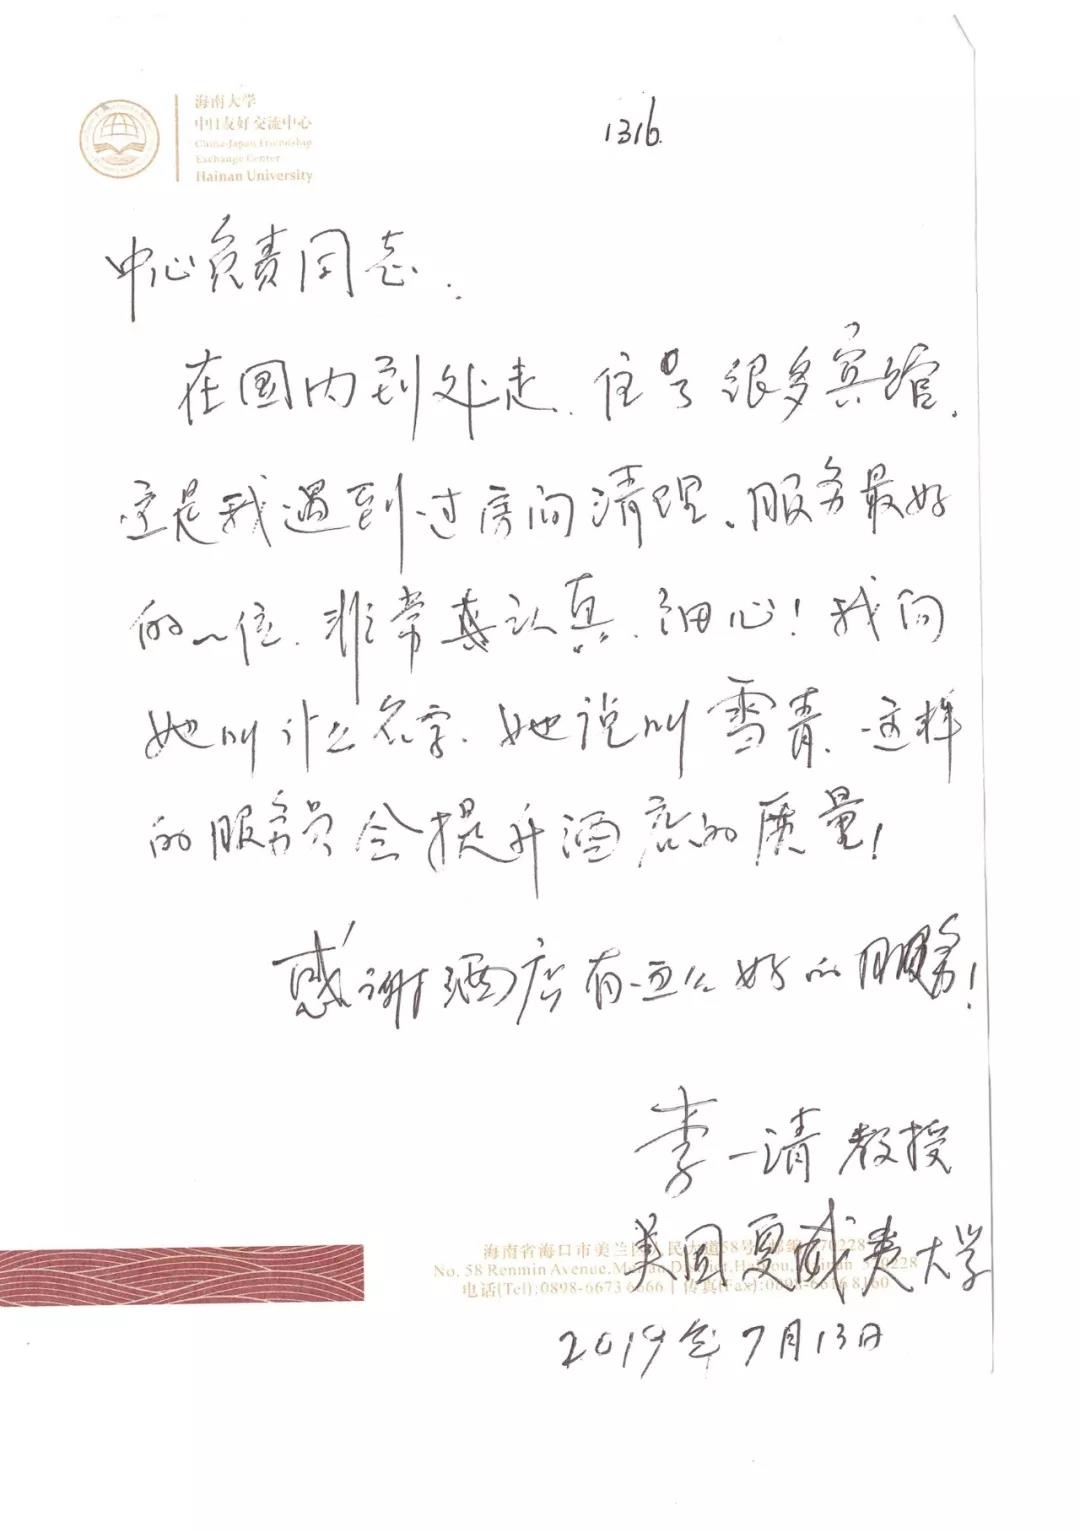 海南大学
中日友好交流中心
China-Japan Friendship
Exchange Center
Hainan University
1316.
中心负责同志:
在国内到处走、住了很多宾馆、
这是我遇到过房间清理、服务最好
的一位、非常真认真、细心!我问
她叫什么名字、她说叫雪青、这样
的服务员会提升酒店的质量!
感谢酒店有这么好的服务!
李一清 教授
美国夏威夷大学
海南省海口市美兰区人民大道58号 邮编:570228
No. 58 Renmin Avenue, Meilan District, Haikou, Hainan 570228
电话(Tel):0898-6673 6666 | 传真(Fax):0898-6616 8160
2019年7月13日